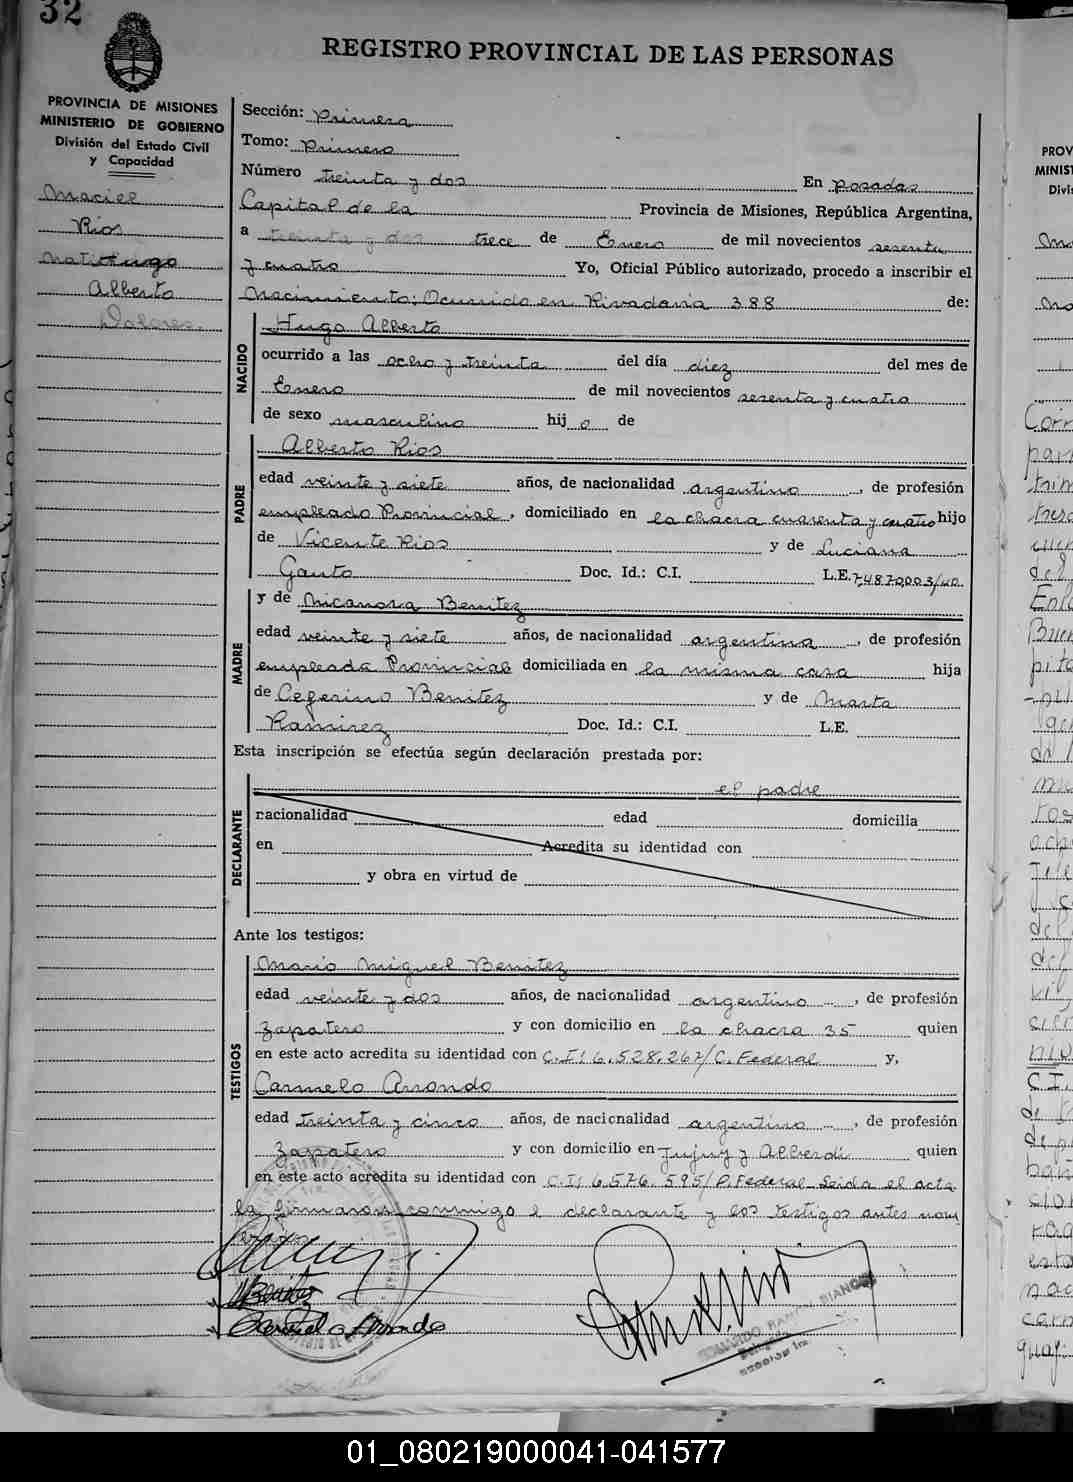 32
REGISTRO PROVINCIAL DE LAS PERSONAS
PROVINCIA DE MISIONES
MINISTERIO DE GOBIERNO
División del Estado Civil
y Capacidad
Rios
Hugo
Alberto
Sección: Primera
Tomo: Primero
Número treinta y dos En Posadas
Capital de la Provincia de Misiones, República Argentina,
a treinta y dos trece de Enero de mil novecientos sesenta
y cuatro Yo, Oficial Público autorizado, procedo a inscribir el
Nacimiento: Ocurrido en Rivadavia 388 de:
NACIDO
Hugo Alberto
ocurrido a las ocho y treinta del día diez del mes de
Enero de mil novecientos sesenta y cuatro
de sexo masculino hij o de
PADRE
Alberto Rios
edad veinte y siete años, de nacionalidad argentino, de profesión
empleado Provincial, domiciliado en la chacra cuarenta y cuatro hijo
de Vicente Rios y de Luciana
Gauto Doc. Id.: C.I. L.E. 7.487.000 3/40
MADRE
y de Nicanora Benitez
edad veinte y siete años, de nacionalidad argentina, de profesión
empleada Provincial domiciliada en la misma casa hija
de Ceferino Benitez y de Marta
Ramirez Doc. Id.: C.I. L.E.
Esta inscripción se efectúa según declaración prestada por:
DECLARANTE
el padre
nacionalidad edad domicilia
en Acredita su identidad con
y obra en virtud de
Ante los testigos:
TESTIGOS
Mario Miguel Benitez
edad veinte y dos años, de nacionalidad argentino, de profesión
Zapatero y con domicilio en la chacra 35 quien
en este acto acredita su identidad con C.I: 6.528.267/C. Federal y,
Carmelo Arrondo
edad treinta y cinco años, de nacionalidad argentino, de profesión
Zapatero y con domicilio en Jujuy y Alberdi quien
en este acto acredita su identidad con C.I: 6.576.595/P. Federal Leida el acta
la firmaron conmigo el declarante y los testigos antes nom
Benitez
Carmelo Arrondo
EDUARDO RAMON BIANCHI
01_080219000041-041577